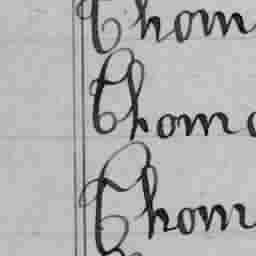 Thom
Thoma
Thom